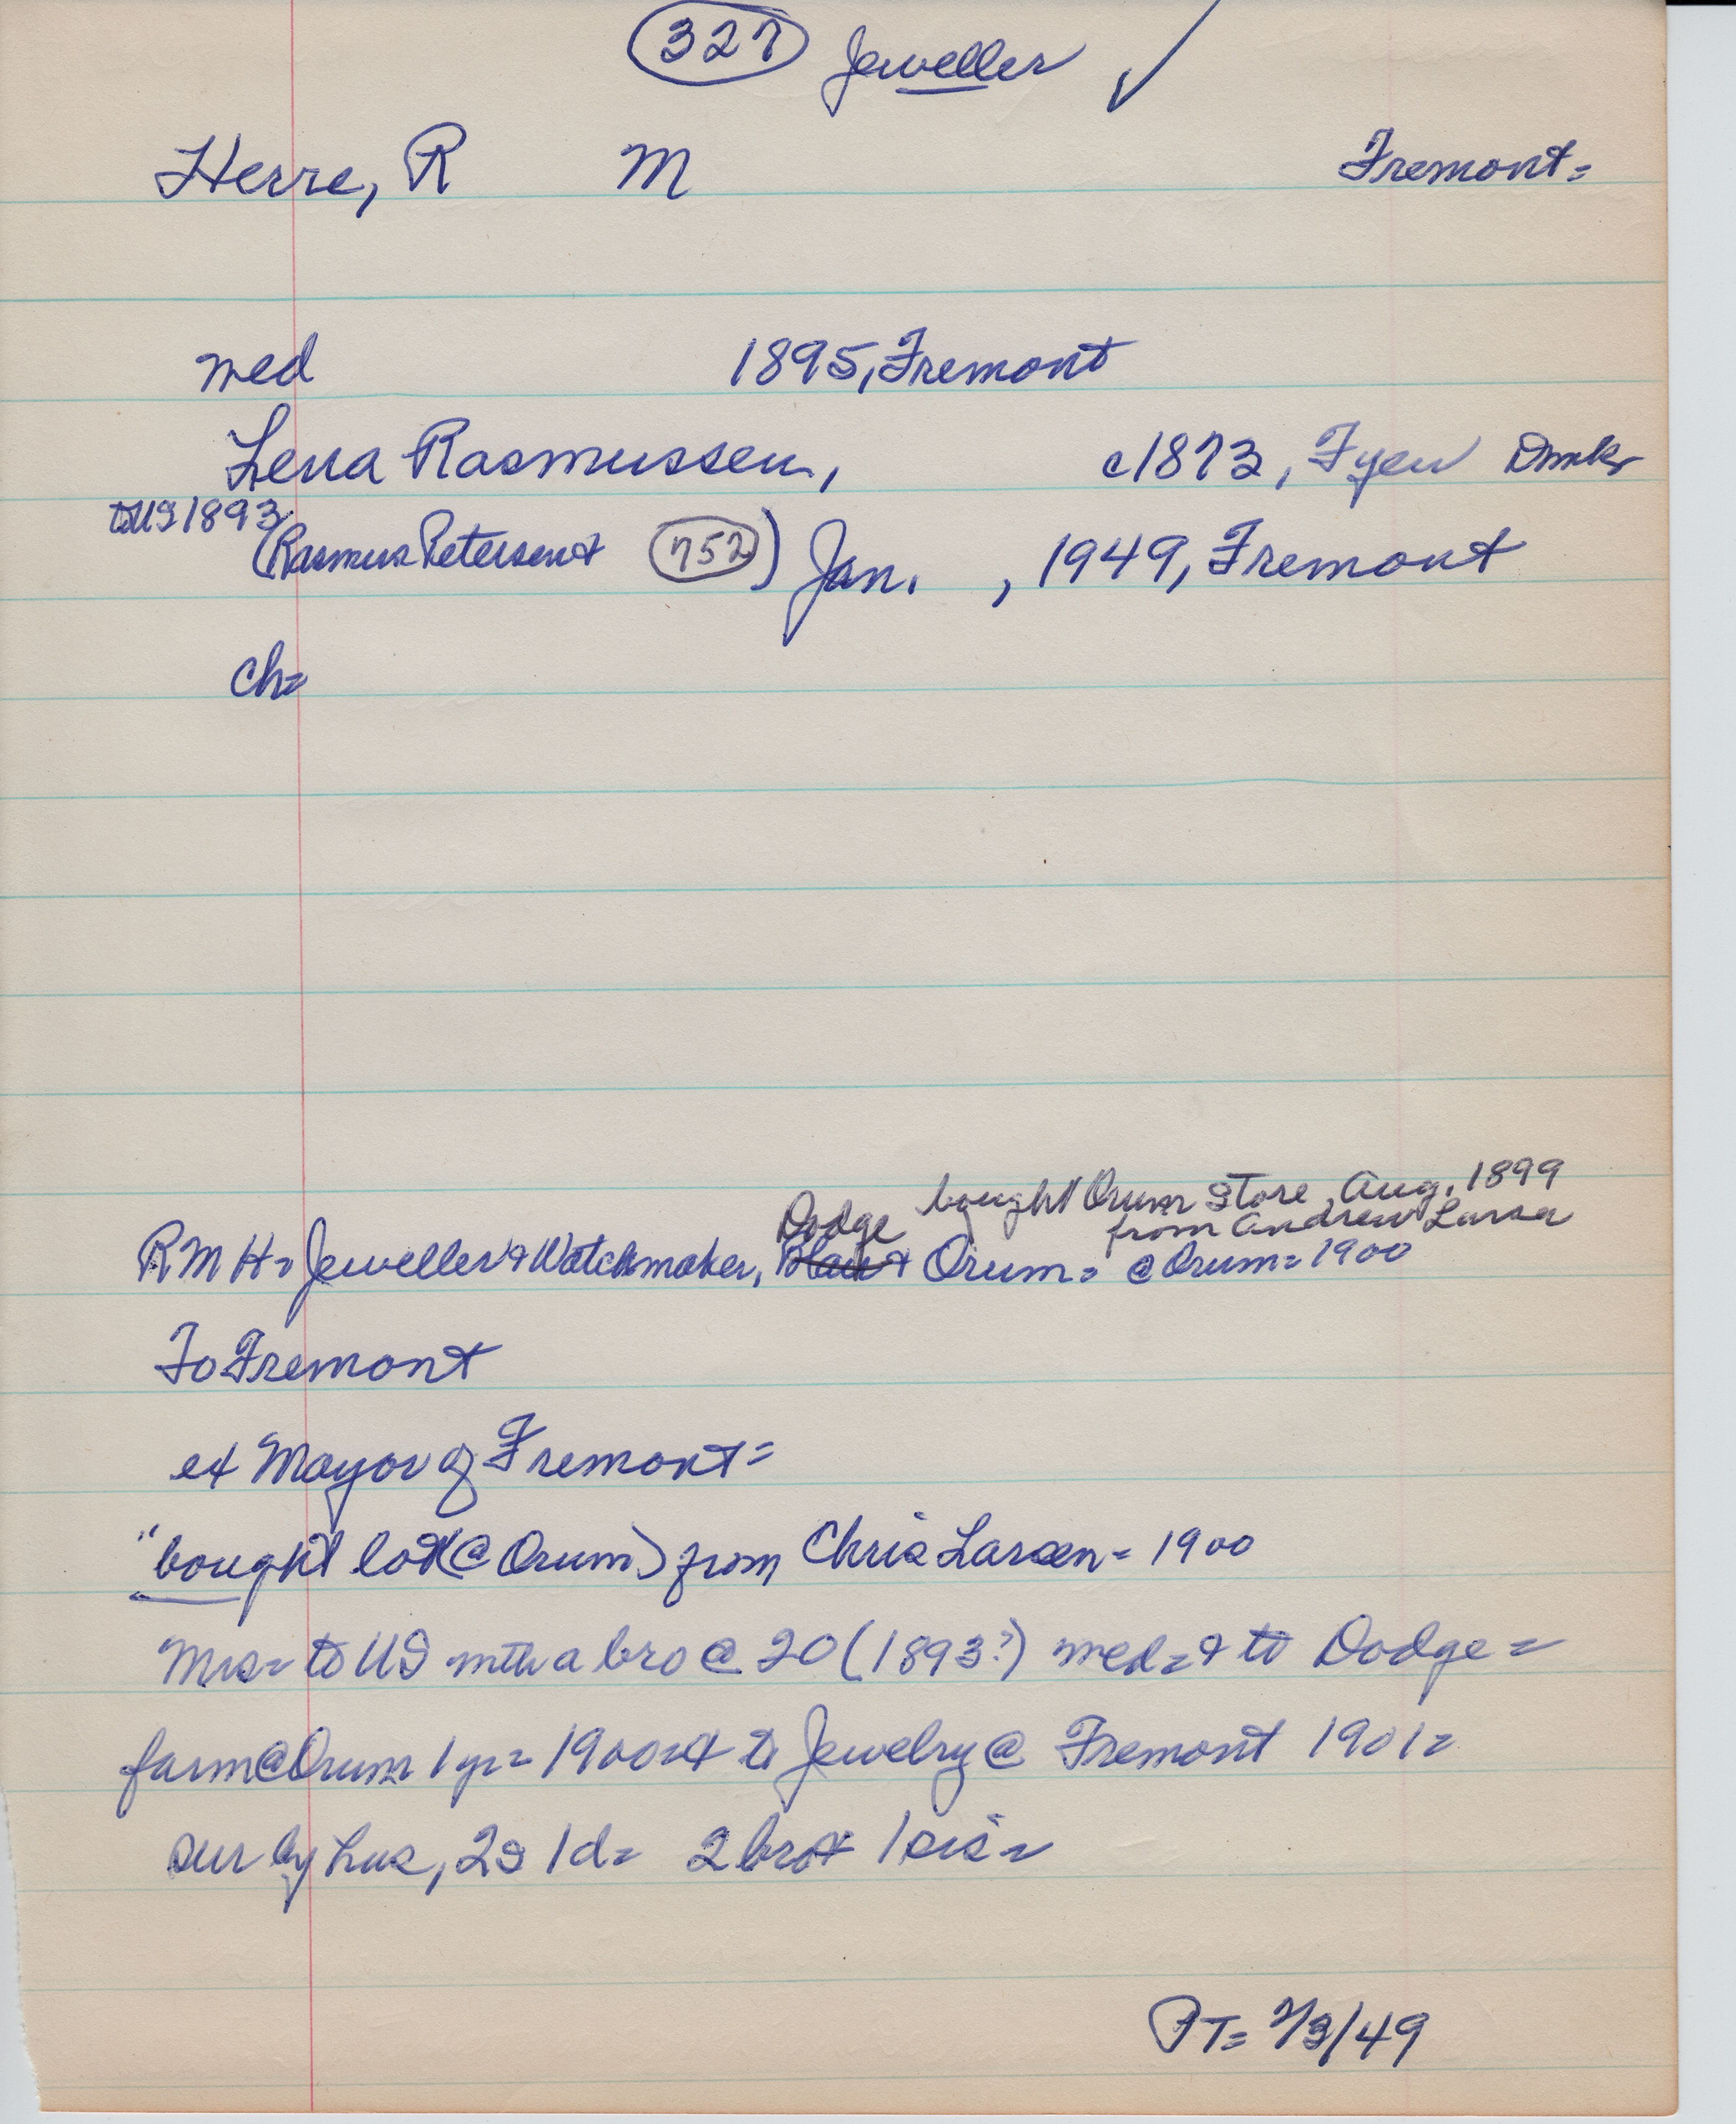 327 Jeweller ✓
Herre, R M Fremont=
med 1895, Fremont
Lena Rasmussen, c1873, Fyen Dmk
to US 1893
(Rasmus Petersen & 752) Jan. , 1949, Fremont
ch=
bought Orum Store, Aug, 1899
Dodge from Andrew Larsen
RMH= Jeweller & Watchmaker, Blair & Orum= @ Orum= 1900
To Fremont
ex Mayor of Fremont=
"bought lot (@ Orum) from Chris Larsen= 1900
Mrs= to US with a bro @ 20 (1893?) med= & to Dodge=
farm @ Orum 1 yr= 1900= & to Jewelry @ Fremont 1901=
sur by hus, 2s 1d= 2 bro & 1 sis=
PT= 2/3/49